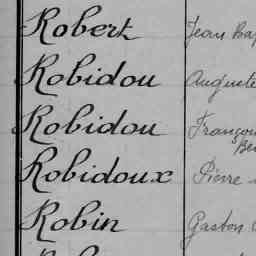 Robert Jean Bap
Robidou Auguste
Robidou François
Ben
Robidoux Pierre
Robin Gaston